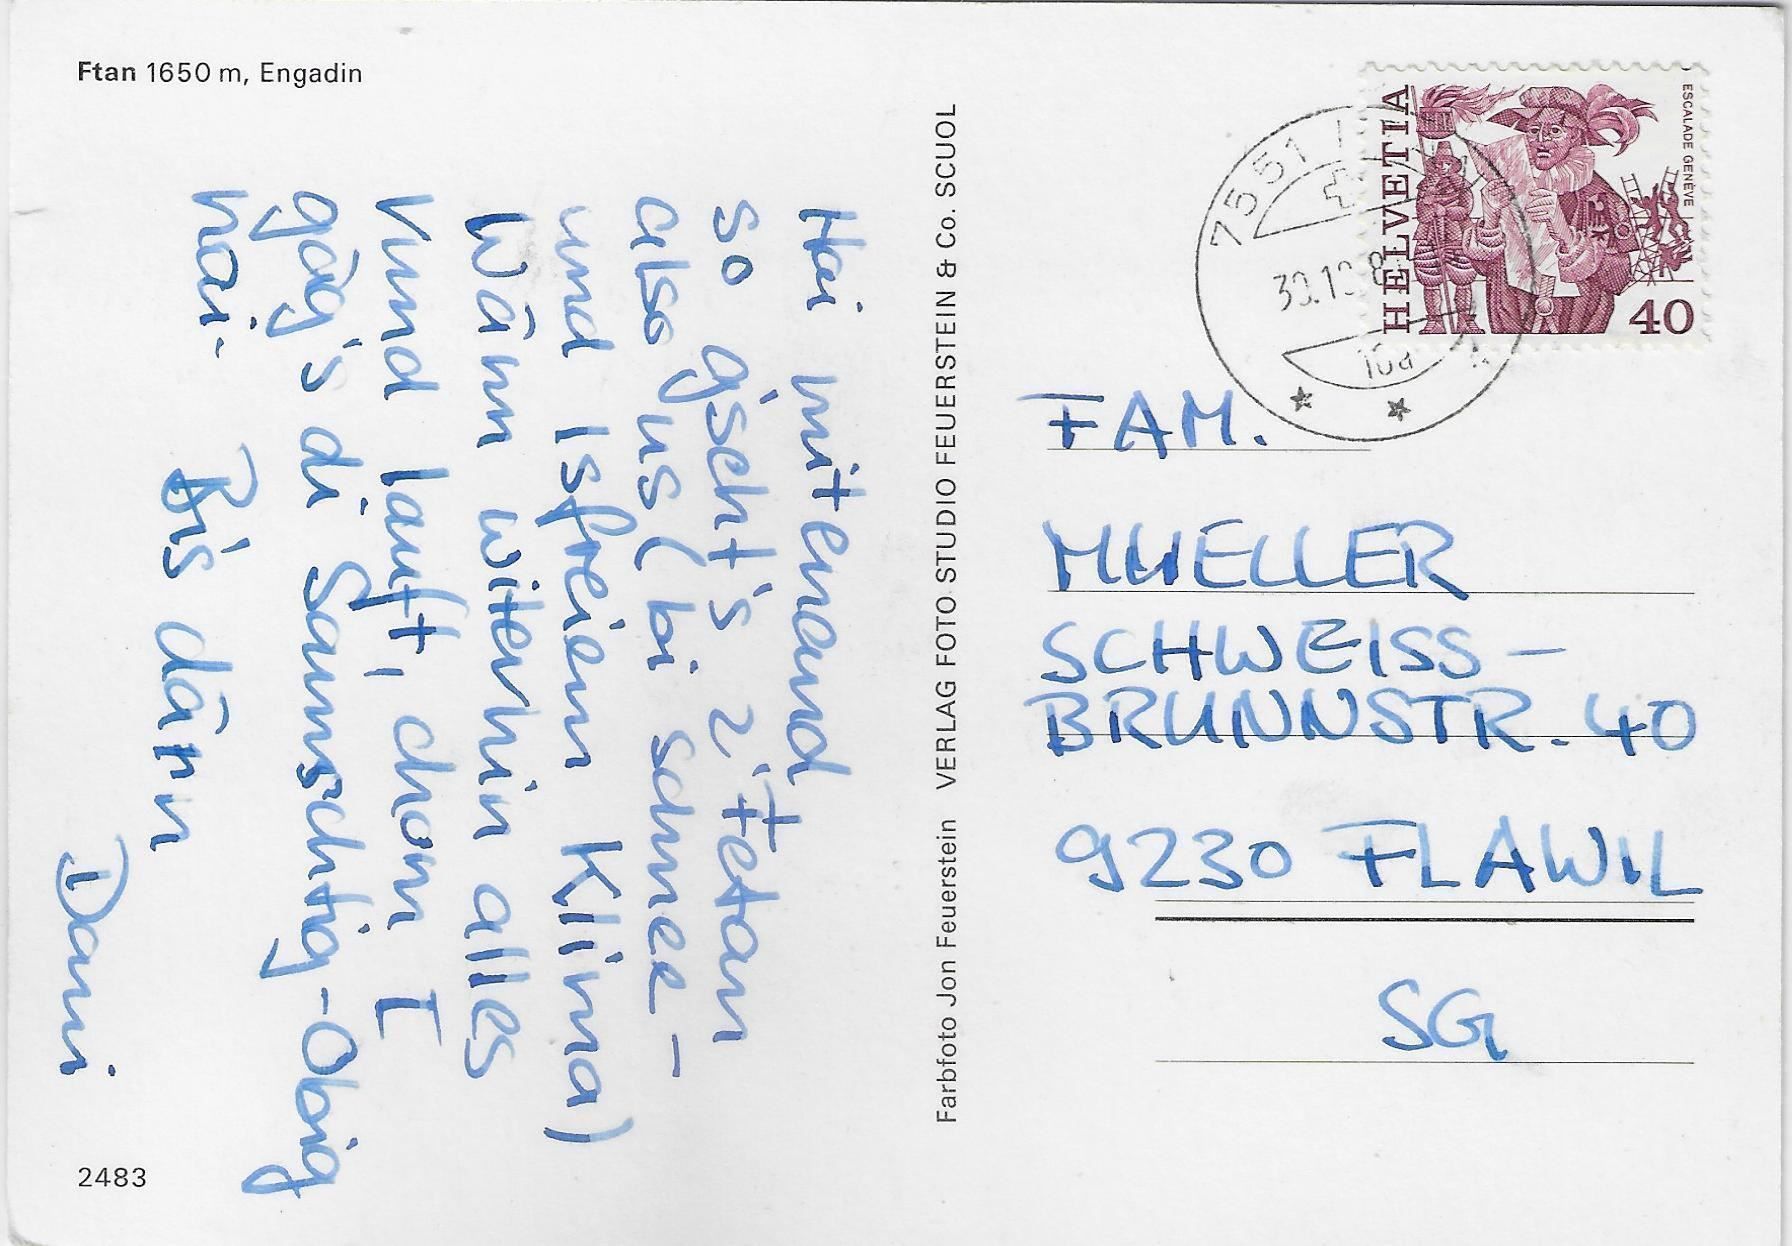 Ftan 1650 m, Engadin
Hoi mitenand
so gseht's z'Fetan
also us (bi schnee-
und Isfreiem Klima)
Wänn witerhin alles
rund lauft, chom I
gäg's di Samschtig-Obig
hai. Bis dänn
Dani
2483
Farbfoto Jon Feuerstein VERLAG FOTO STUDIO FEUERSTEIN & Co. SCUOL
HELVETIA
ESCALADE GENÈVE
40
7551
30.10.8
10a
FAM.
MUELLER
SCHWEISS-
BRUNNSTR. 40
9230 FLAWIL
SG